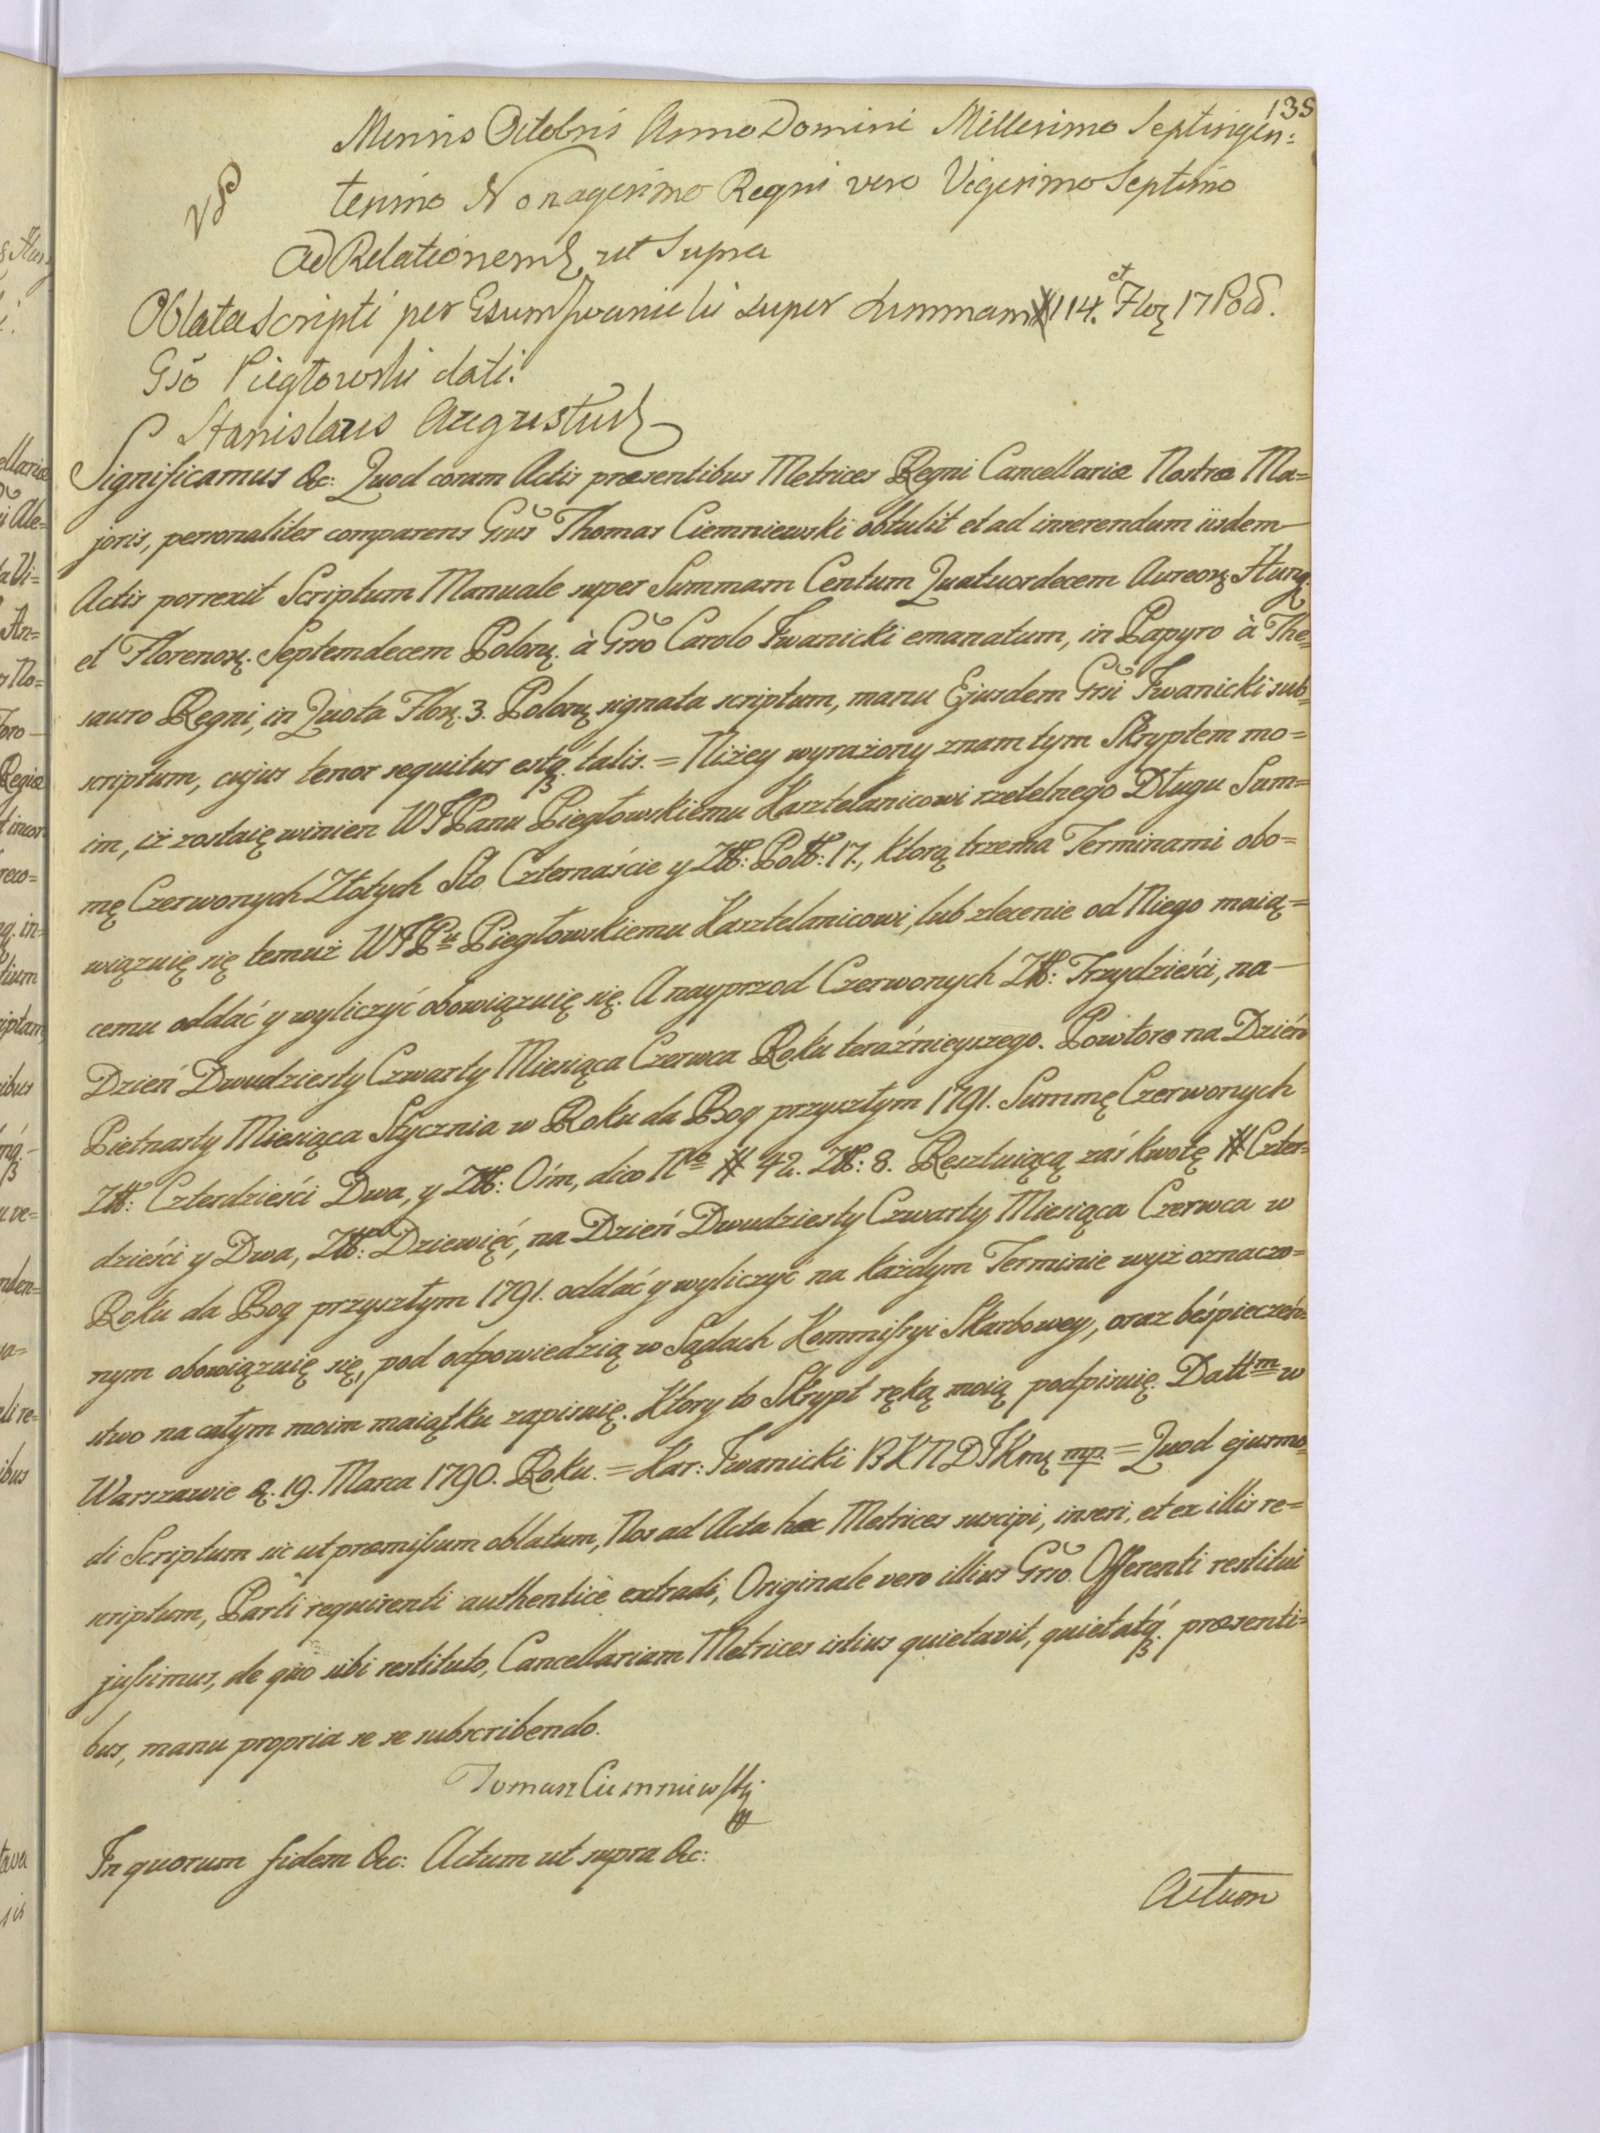 138
Mensis Octobris Anno Domini Millesimo Septingen=
tesimo Nonagesimo Regni vero Vigesimo Septimo
Ad Relationem ut Supra
Oblata Scripti per Gsum Iwanicki super Summam # 114. et Flor 17 Pol.
Gso Piegłowski dati.
Stanislaus Augustus
Significamus &c: Quod coram Actis præsentibus Metrices Regni Cancellariæ Nostræ Ma=
joris, personaliter comparens Gsus Thomas Ciemniewski obtulit et ad inserendum iisdem
Actis porrexit Scriptum Manuale super Summam Centum Quatuordecem Aureor. Hung.
et Florenor. Septemdecem Polon. à Gsso Carolo Iwanicki emanatum, in Papyro à The=
sauro Regni, in Quota Flor. 3. Polon. signata scriptum, manu Ejusdem Gssi Iwanicki sub=
scriptum, cujus tenor sequitur estq. talis. = Niżey wyrażony znam tym Skryptem mo=
im, iż zostaię winien WJPanu Piegłowskiemu Kasztelanicowi rzetelnego Długu Sum=
mę Czerwonych Złotych Sto Czternaście y Złł: Poll: 17., ktorą trzema Terminami obo=
wiązuię się temuż WJPu Piegłowskiemu Kasztelanicowi, lub zlecenie od Niego maią=
cemu oddać y wyliczyć obowiązuię się. A nayprzod Czerwonych Złł: Trzydzieści, na
Dzień Dwudziesty Czwarty Miesiąca Czerwca Roku teraźnieyszego. Powtore na Dzień
Pietnasty Miesiąca Stycznia w Roku da Bog przyszłym 1791. Summę Czerwonych
Złł: Czterdzieści Dwa, y Złł: Ośm, dico Nro # 42. Złł: 8. Resztuiącą zaś kwotę # Czter=
dzieści y Dwa, Złł: Dziewięć, na Dzień Dwudziesty Czwarty Miesiąca Czerwca w
Roku da Bog przyszłym 1791. oddać y wyliczyć na każdym Terminie wyż oznaczo=
nym obowiązuię się, pod odpowiedzią w Sądach Kommissyi Skarbowey, oraz beśpieczeń=
stwo na całym moim maiątku zapisuię. Ktory to Skrypt ręką moią podpisuię. Dattm w
Warszawie D. 19. Marca 1790. Roku. = Kar: Iwanicki mp. = Quod ejusmo=
di Scriptum sic ut præmissum oblatum, Nos ad Acta hæc Metrices suscipi, inseri, et ex illis re=
scriptum, Parti requirenti authenticè extradi, Originale vero illius Gsso. Offerenti restitui
jussimus, de quo sibi restituto, Cancellariam Metrices istius quietavit, quietatq. præsenti=
bus, manu propria se se subscribendo.
Tomasz Ciemniewski
In quorum fidem &c: Actum ut supra &c:
Actum